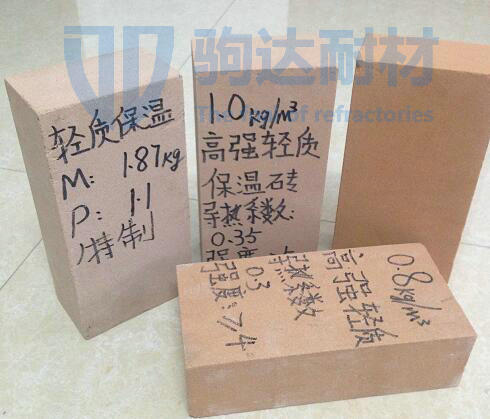 驹达耐材
refractories
轻质保温
M: 1.87kg
P: 1.1
特制
1.0kg/m³
高强轻质
保温砖
导热系数:
0.35
强度:
0.8kg/m³
高强轻质
导热系数
0.3
强度:7.4